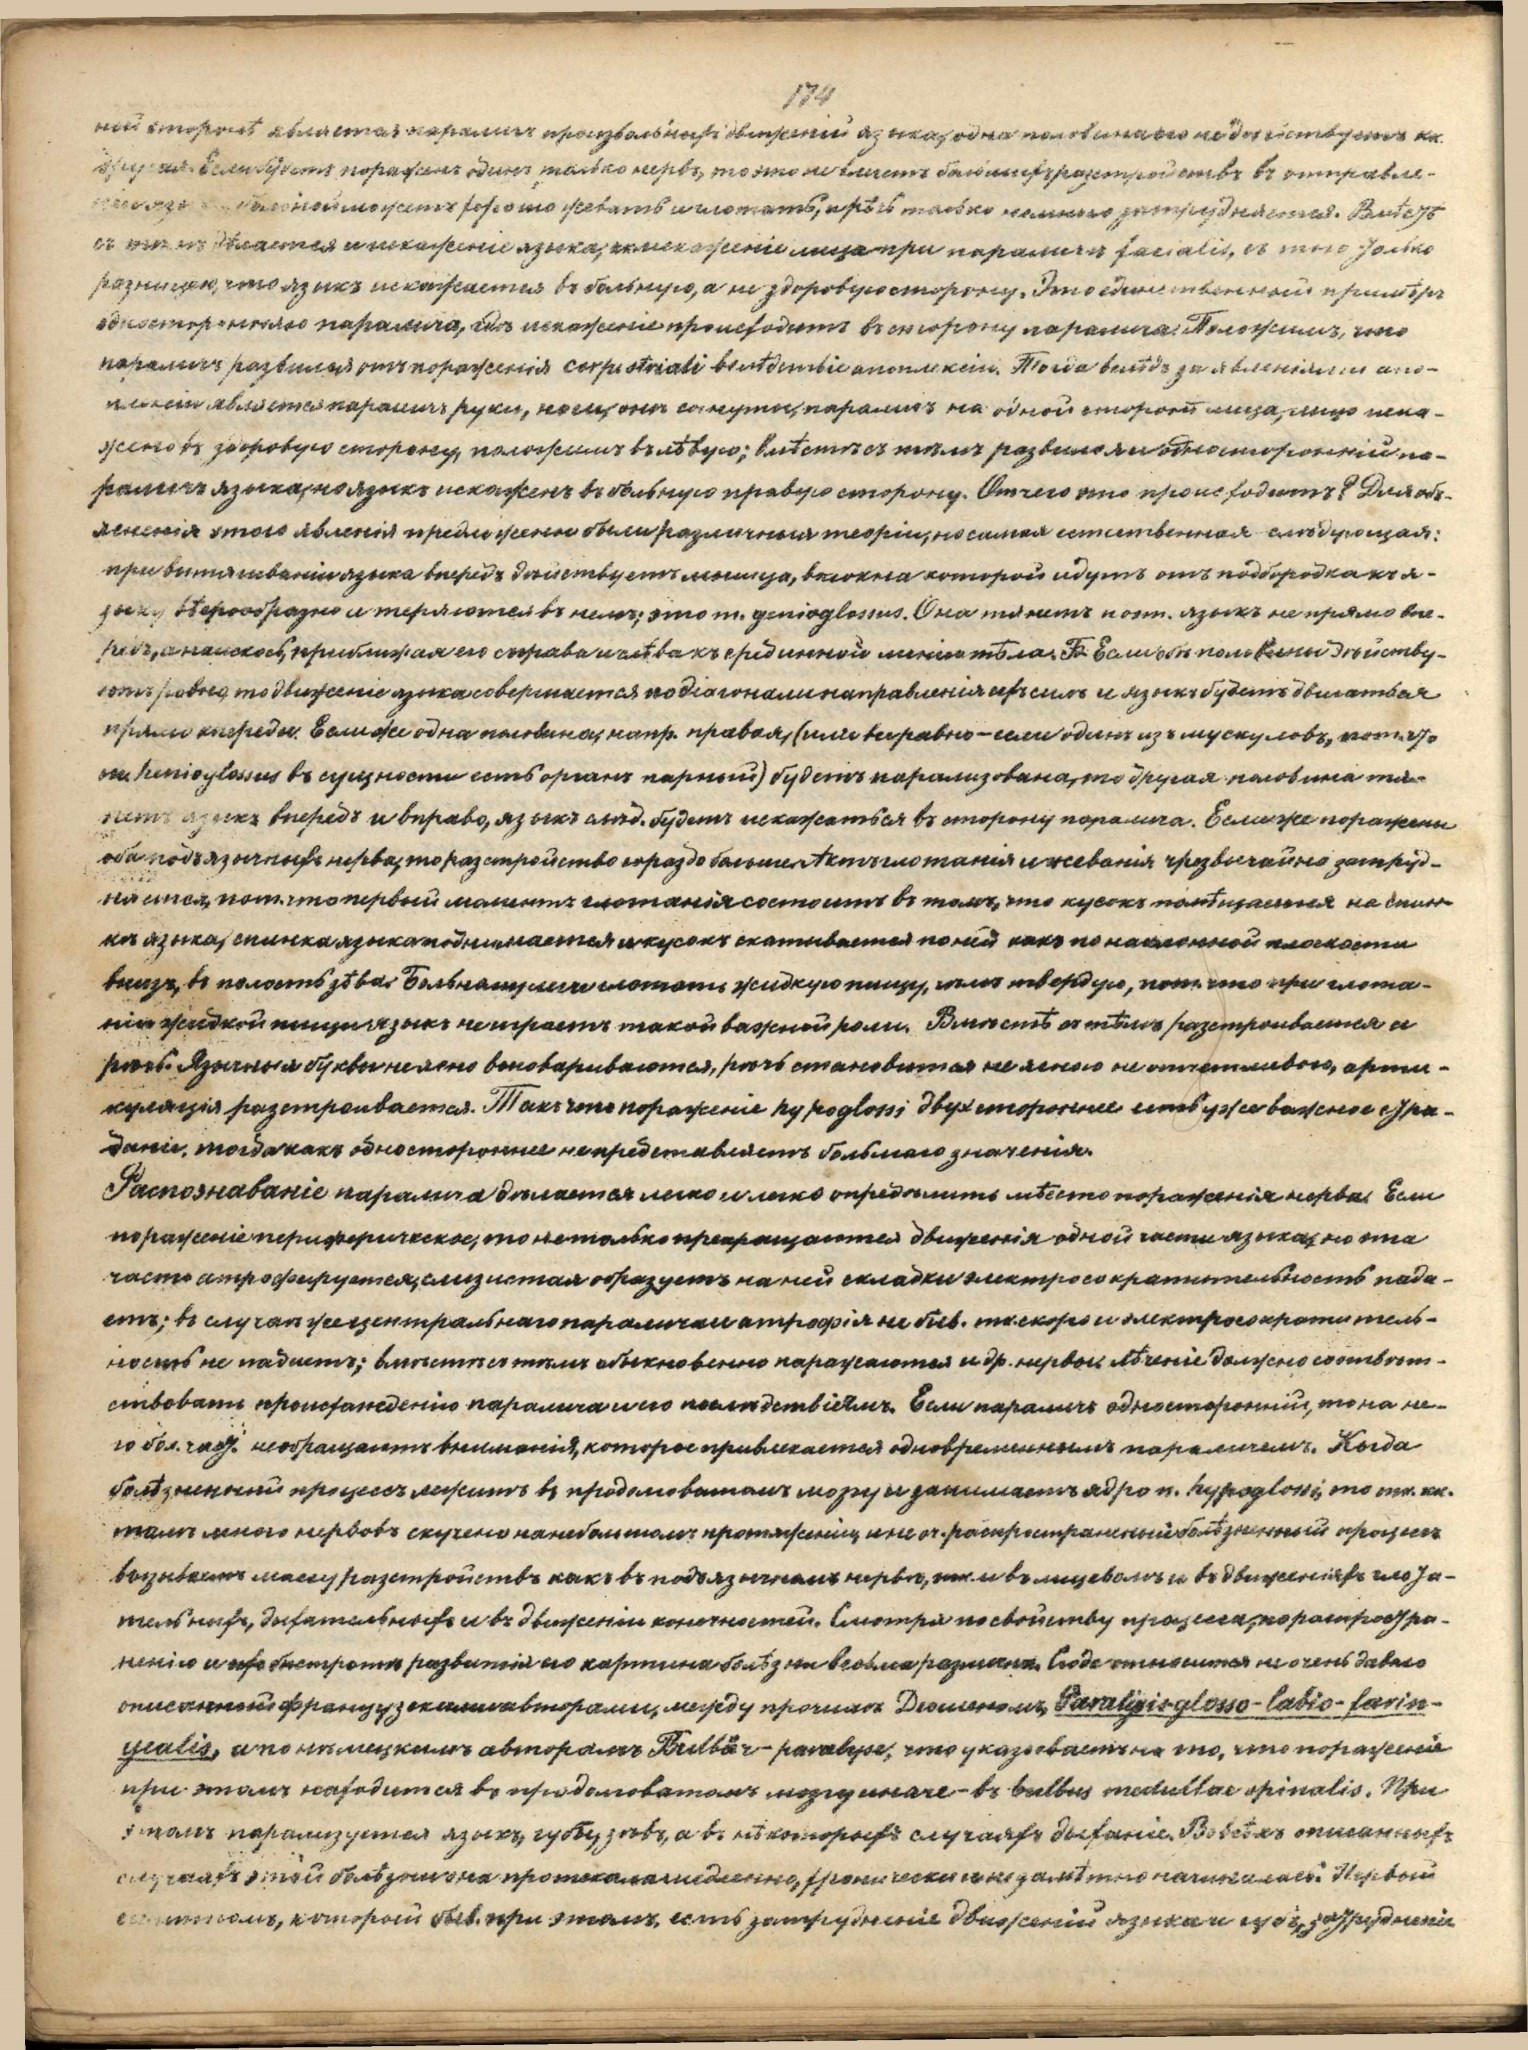 174
ной сторонѣ является параличъ произвольныхъ движеній языка, одна половина его не дѣйствуетъ как.
другая. Если будетъ пораженъ одинъ только нервъ, то это не влечетъ большихъ разстройствъ въ отправле-
больной можетъ хорошо жевать и глотать, рѣчь только немного затрудняется. Вмѣстѣ
съ тѣмъ дѣлается и искаженіе языка, как. искаженіе лица при параличѣ facialis, съ тою только
разницею, что языкъ искажается въ больную, а не здоровую сторону. Это единственный примѣръ
одностороняго паралича, гдѣ искаженіе происходитъ въ сторону паралича. Положимъ, что
параличъ развился отъ пораженія corp. striati вслѣдствіе апоплексіи. Тогда вслѣдъ за явленіями апо-
плексіи является параличъ руки, ноги, они согнуты, параличъ на одной сторонѣ лица, лицо иска-
жено въ здоровую сторону, положимъ въ лѣвую; вмѣстѣ съ тѣмъ развился и односторонній па-
раличъ языка, но языкъ искаженъ въ больную правую сторону. Отчего это происходитъ? Для объ-
ясненія этого явленія предложены были различныя теоріи, но самая естественная слѣдующая:
при вытягиваніи языка впередъ дѣйствуетъ мышца, волокна которой идутъ отъ подбородка къ я-
зыку вѣерообразно и теряются въ немъ; это m. genioglossus. Она тянетъ пот. языкъ не прямо впе-
редъ, а наискось, приближая его справа и слѣва къ срединной линіи тѣла. Если обѣ половины дѣйству-
ютъ равно, то движеніе языка совершается по діагонали направленія ихъ силъ и языкъ будетъ двигаться
прямо кпереди. Если же одна половина, напр. правая, (или всеравно – если одинъ изъ мускуловъ, потому что
m. genioglossus въ сущности есть органъ парный) будетъ парализована, то другая половина тя-
нетъ языкъ впередъ и вправо, языкъ слѣд. будетъ искажаться въ сторону паралича. Если же поражены
оба подъязычныхъ нерва, то разстройство гораздо больше. Актъ глотанія и жеванія чрезвычайно затруд-
няется, пот. что первый моментъ глотанія состоитъ въ томъ, что кусокъ помѣщается на спин-
кѣ языка, спинка языка поднимается и кусокъ скатывается по ней какъ по наклонной плоскости
внизъ, въ полость зѣва. Больному легче глотать жидкую пищу, чѣмъ твердую, пот. что при глота-
ніи жидкой пищи языкъ не играетъ такой важной роли. Вмѣстѣ съ тѣмъ разстроивается и
рѣчь. Язычныя буквы неясно выговариваются, рѣчь становится не ясною не отчетливою, арти-
куляція разстроивается. Такъ что пораженіе hypoglossi двухстороннее есть уже важное стра-
даніе, тогда какъ одностороннее не представляетъ большаго значенія.
Распознаваніе паралича дѣлается легко и легко опредѣлить мѣсто пораженія нерва. Если
пораженіе периферическое, то не только прекращаются движенія одной части языка, но эта
часть атрофируется, слизистая образуетъ на ней складки электросократительность пада-
етъ; въ случаѣ же центральнаго паралича и атрофія не быв. так. скоро и электросократитель-
ность не падаетъ; вмѣстѣ съ тѣмъ обыкновенно поражаются и др. нервы. Лѣченіе должно соотвѣт-
ствовать происхожденію паралича и его послѣдствіямъ. Если параличъ односторонній, то на не-
го бол. част. необращаютъ вниманія, которое привлекается одновременнымъ параличемъ. Когда
болѣзненный процессъ лежитъ въ продолговатомъ мозгу и занимаетъ ядро n. hypoglossi, то так. как.
тамъ много нервовъ скучено на небольшомъ протяженіи, и не оч. распространенный болѣзненный процессъ
вызываетъ массу разстройствъ какъ въ подъязычномъ нервѣ, так. и въ лицевомъ и въ движеніяхъ глота-
тельныхъ, дыхательныхъ и въ движеніи конечностей. Смотря по свойству процесса, по распростра-
ненію и быстротѣ развитія его картина болѣзни весьма различна. Сюда относится не очень давно
описанный французскими авторами, между прочимъ Дюшеномъ, Paralysis glosso-labio-farin-
gealis, а по нѣмецкимъ авторамъ Bulbär-paralyse, что указываетъ на то, что пораженіе
при этомъ находится въ продолговатомъ мозгу иначе – въ bulbus medullae spinalis. При
этомъ парализуется языкъ, губы, зѣвъ, а въ нѣкоторыхъ случаяхъ дыханіе. Во всѣхъ описанныхъ
случаяхъ этой болѣзни она протекала медленно, хронически и незамѣтно начиналась. Первый
симптомъ, который быв. при этомъ, есть затрудненіе движеній языка и губъ, затрудненіе